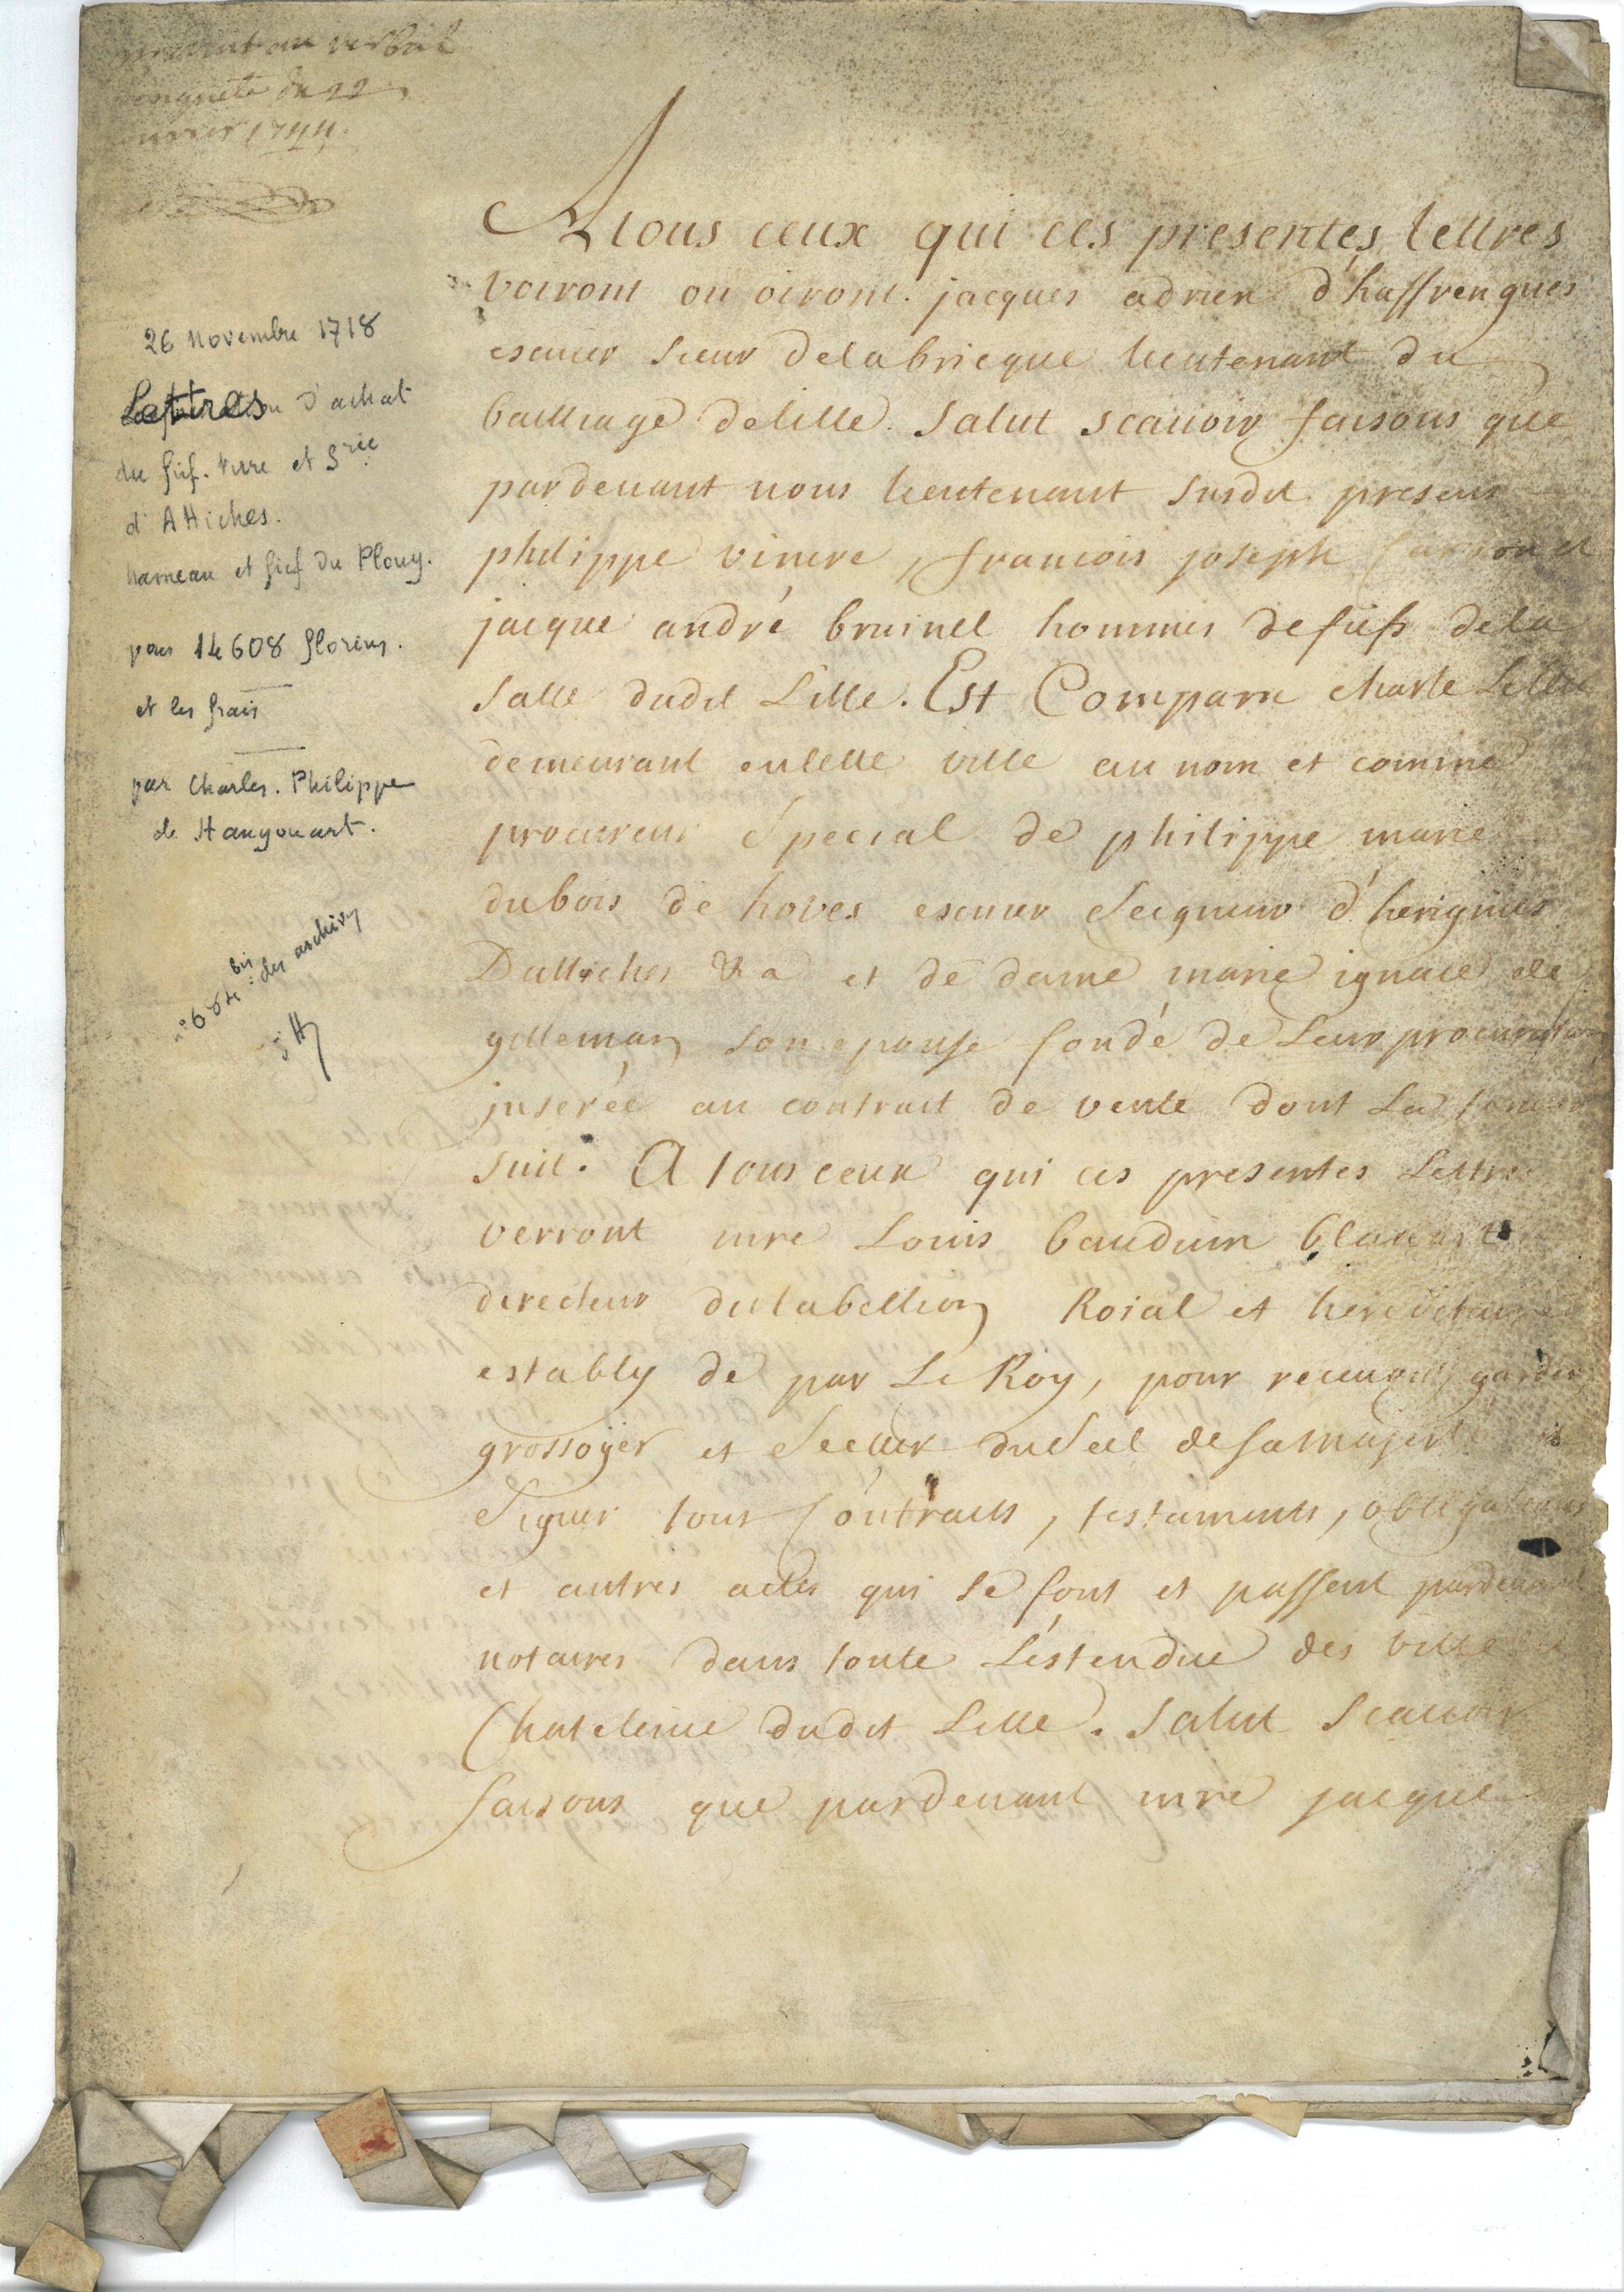 verbal
enqueste du 22
1744.
26 novembre 1718
Lettres d'achat
du fief. terre et Srie
d'Attiches.
hameau et fief du Plouy.
pour 14608 florins.
et les frais
par Charles. Philippe
de Hangouart.
n° 684 bis des archives
A tous ceux qui ces presentes lettres
voiront ou oiront. jacques adrien d'haffrengues
escuier sieur delabricque lieutenant du
bailliage delille. Salut scauoir faisons que
pardeuant nous lieutenant susdit presens
philippe vinere, francois joseph
jacque andré bruinel hommes de fiefs dela
salle dudit Lille. Est Comparu charle
demeurant enlelle ville au nom et comme
procureur Special de philippe marie
dubois de hoves escuier Seigneur d'herignies
Dattiches &a et de dame marie ignace de
gilleman son epouse fondé de Leur procuration
inserée au contract de vente dont La teneur
suit. A tous ceux qui ces presentes Lettres
verront mre Louis bauduin
directeur dutabellion Roial et hereditaire
estably de par Le Roy, pour receuoir garder
grossoyer et Seeller duSeel deSamajesté
Signer tous Contracts, testaments, obligations
et autres actes qui se font et passent pardeuant
notaires dans toute L'estendue des ville et
Chatelenie dudit Lille. Salut Scauoir
faisons que pardeuant mre jacque